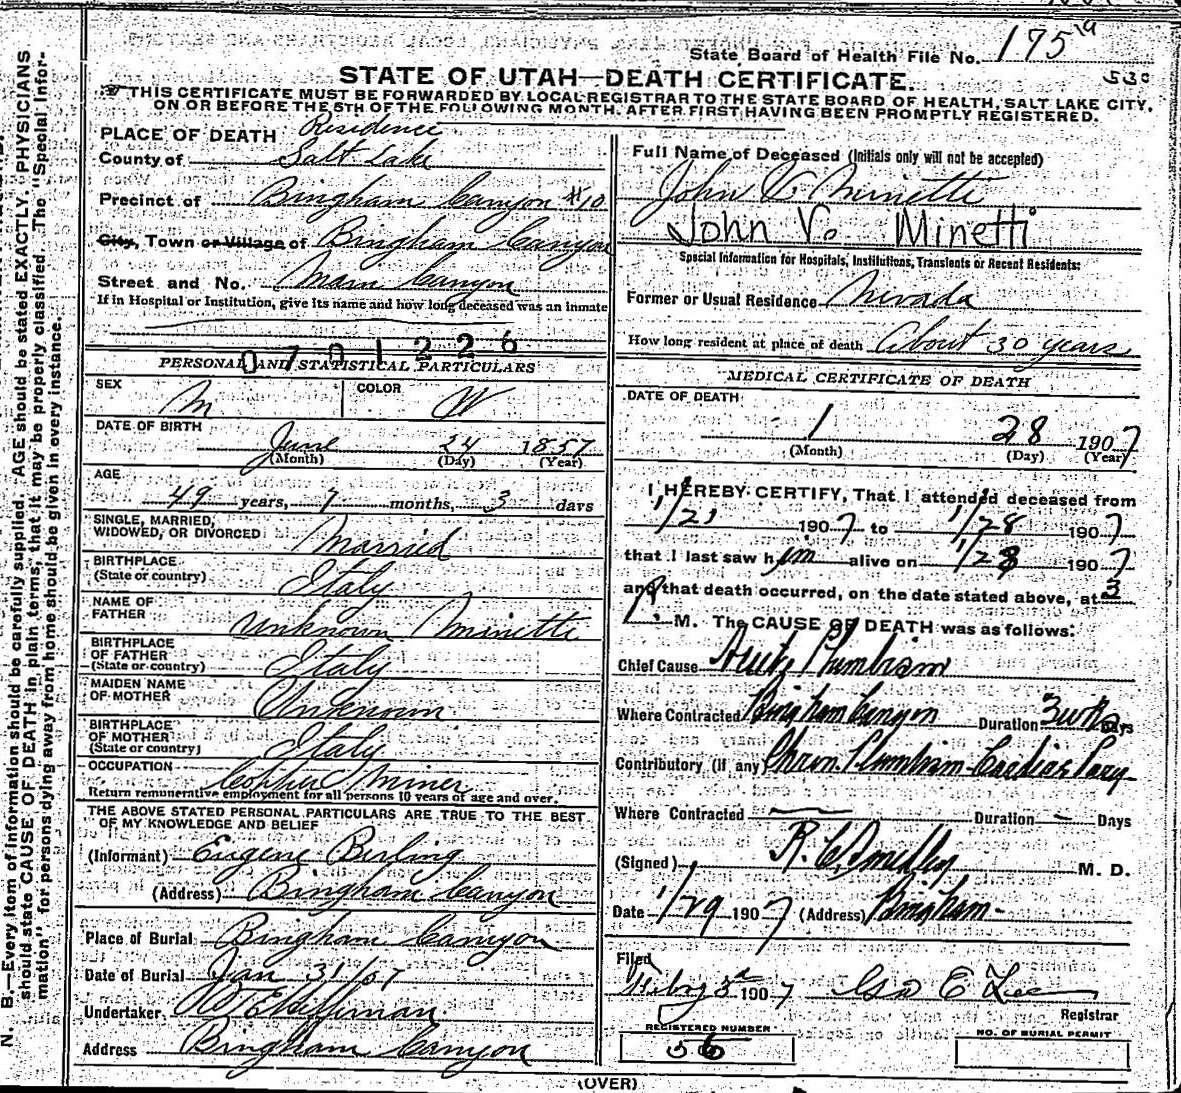 State Board of Health File No. 175
530
STATE OF UTAH—DEATH CERTIFICATE.
THIS CERTIFICATE MUST BE FORWARDED BY LOCAL REGISTRAR TO THE STATE BOARD OF HEALTH, SALT LAKE CITY,
ON OR BEFORE THE 5TH OF THE FOLLOWING MONTH. AFTER FIRST HAVING BEEN PROMPTLY REGISTERED.
PLACE OF DEATH Residence
County of Salt Lake
Precinct of Bingham Canyon #10
City, Town or Village of Bingham Canyon
Street and No. Main Canyon
If in Hospital or Institution, give its name and how long deceased was an inmate
0701226
PERSONAL AND STATISTICAL PARTICULARS
SEX M COLOR W
DATE OF BIRTH
June 24 1857
(Month) (Day) (Year)
AGE
49 years, 7 months, 3 days
SINGLE, MARRIED,
WIDOWED, OR DIVORCED Married
BIRTHPLACE
(State or country) Italy
NAME OF
FATHER Unknown Minetti
BIRTHPLACE
OF FATHER
(State or country) Italy
MAIDEN NAME
OF MOTHER Unknown
BIRTHPLACE
OF MOTHER
(State or country) Italy
OCCUPATION Miner
Return remunerative employment for all persons 10 years of age and over.
THE ABOVE STATED PERSONAL PARTICULARS ARE TRUE TO THE BEST
OF MY KNOWLEDGE AND BELIEF
(Informant) Eugene Berling
(Address) Bingham Canyon
Place of Burial Bingham Canyon
Date of Burial Jan 31/07
Undertaker
Address Bingham Canyon
Full Name of Deceased (Initials only will not be accepted)
John V Minetti
John V. Minetti
Special Information for Hospitals, Institutions, Transients or Recent Residents:
Former or Usual Residence Nevada
How long resident at place of death About 30 years
MEDICAL CERTIFICATE OF DEATH
DATE OF DEATH
1 28 1907
(Month) (Day) (Year)
I HEREBY CERTIFY, That I attended deceased from
1/21 1907 to 1/28 1907
that I last saw him alive on 1/28 1907
and that death occurred, on the date stated above, at 3
P. M. The CAUSE OF DEATH was as follows:
Chief Cause
Where Contracted Bingham Canyon Duration 3 wks Days
Contributory (if any) Chron.
Where Contracted — Duration — Days
(Signed) M. D.
Date 1/29 1907 (Address) Bingham
Filed
3 1907 Geo E Lee
Registrar
REGISTERED NUMBER
56
NO. OF BURIAL PERMIT
(OVER)
N. B.—Every item of information should be carefully supplied. AGE should be stated EXACTLY. PHYSICIANS
should state CAUSE OF DEATH in plain terms, that it may be properly classified. The "Special Infor-
mation" for persons dying away from home should be given in every instance.